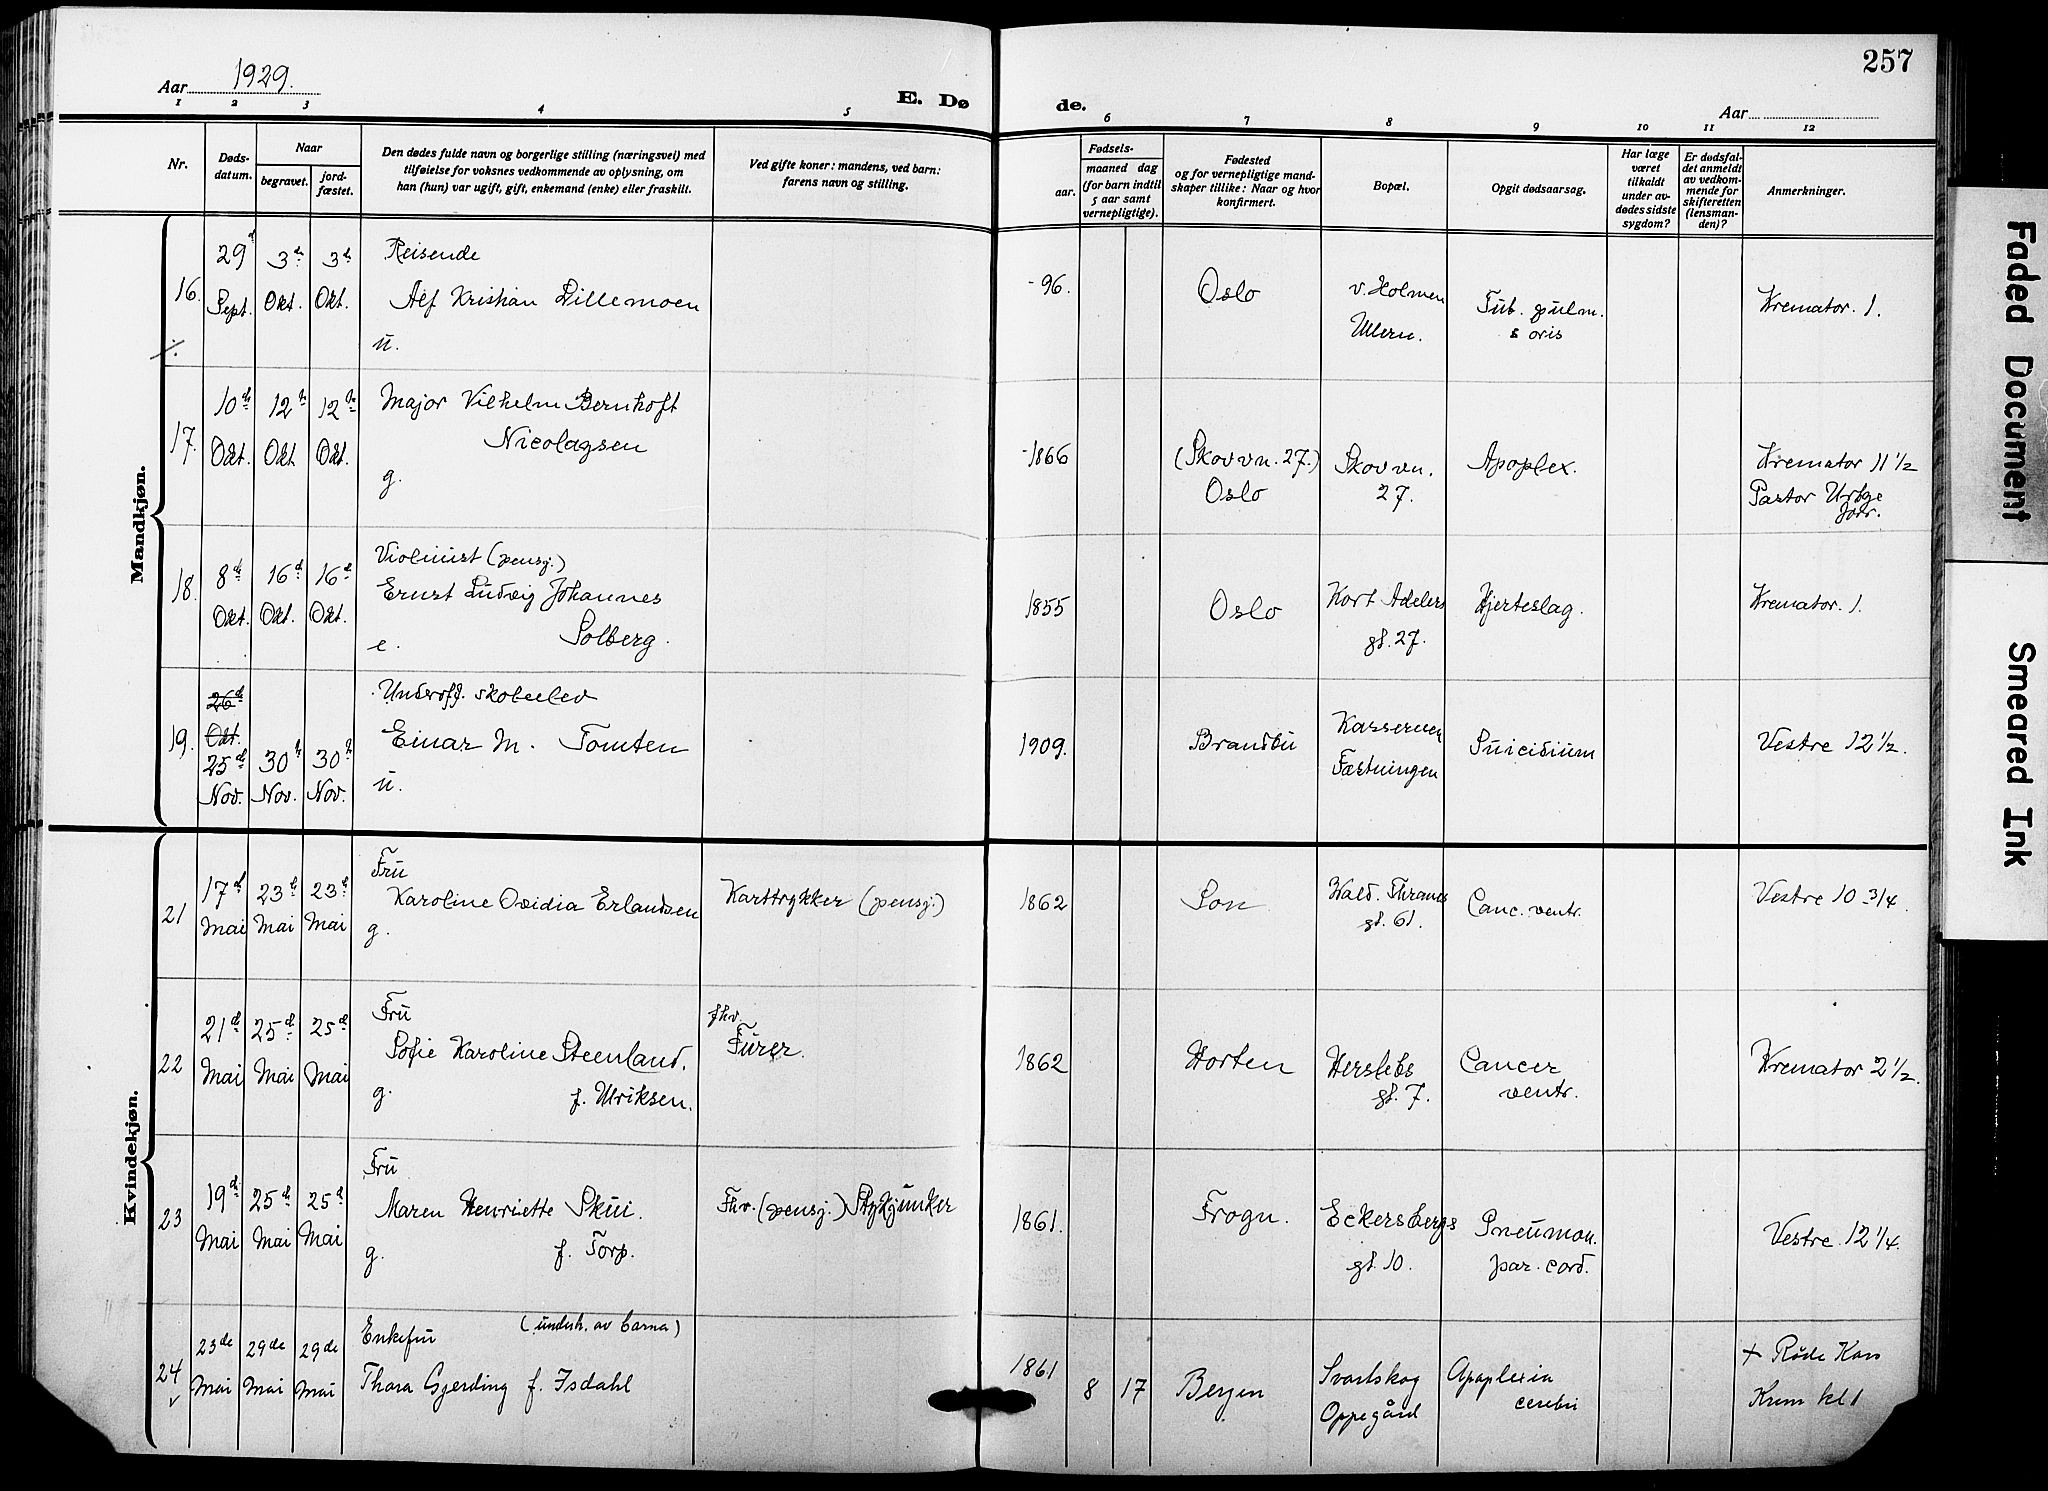 257
Aar 1929.
E. Dø de.
Aar
1 2 3 4 5 6 7 8 9 10 11 12
Nr.
Døds-
datum.
Naar
begravet.
jord-
fæstet.
Den dødes fulde navn og borgerlige stilling (næringsvei) med
tilføielse for voksnes vedkommende av oplysning, om
han (hun) var ugift, gift, enkemand (enke) eller fraskilt.
Ved gifte koner: mandens, ved barn:
farens navn og stilling.
Fødsels-
aar.
maaned dag
(for barn indtil
5 aar samt
vernepligtige).
Fødested
og for vernepligtige mand-
skaper tillike: Naar og hvor
konfirmert.
Bopæl.
Opgit dødsaarsag.
Har læge
været
tilkaldt
under av-
dødes sidste
sygdom?
Er dødsfal-
det anmeldt
av vedkom-
mende for
skifteretten
(lensman-
den)?
Anmerkninger.
Mandkjøn.
16.
29d
Sept.
3d
Okt.
3d
Okt.
Reisende
Alf Kristian Lillemoen
u.
-96.
Oslo
v. Holmen
Ullern.
Tub. pulm.
& oris
Kremator. 1.
17.
10d
Okt.
12d
Okt.
12d
Okt.
Major Vilhelm Bernhoft
Nicolaysen
g.
1866
(Skovvn. 27.)
Oslo
Skovvn.
27.
Apoplex.
Kremator 11 1/2
Pastor
18.
8d
Okt.
16d
Okt.
16d
Okt.
Violinist (pensj.)
Ernst Ludvig Johannes
Solberg.
e.
1855
Oslo
Kort Adelers
gt. 27.
Hjerteslag.
Kremator. 1.
19.
26d
Okt.
25d
Nov.
30d
Nov.
30d
Nov.
Underoff. skoleelev
Einar M. Tomten
u.
1909.
Brandbu
Kasernen
Fæstningen
Suicidium
Vestre 12 1/2.
Kvindekjøn.
21
17d
Mai
23d
Mai
23d
Mai
Fru
Karoline Ovidia Erlandsen
g.
Karttrykker (pensj.)
1862
Son
Wald. Thranes
gt. 61.
Canc. ventr.
Vestre 10 3/4.
22
21d
Mai
25d
Mai
25d
Mai
Fru
Sofie Karoline Steenland.
g. f. Ulriksen.
fhv.
Furer.
1862
Horten
Herslebs
gt. 7.
Cancer
ventr.
Kremator 2 1/2.
23
19d
Mai
25d
Mai
25d
Mai
Fru
Maren Henriette Skui.
g. f. Torp.
Fhv. (pensj.) Stykjunker
1861.
Frogn.
Eckersbergs
gt. 10.
Pneumon.
par. cord.
Vestre 12 1/4.
24
23de
Mai
29de
Mai
29de
Mai
Enkefru (underh. av barna)
Thora Gjerding f. Isdahl
1861
8 17
Bergen
Svartskog
Oppegård
Apoplexia
cerebri
+ Røde Kors
Krem kl 1
Faded Document
Smeared Ink